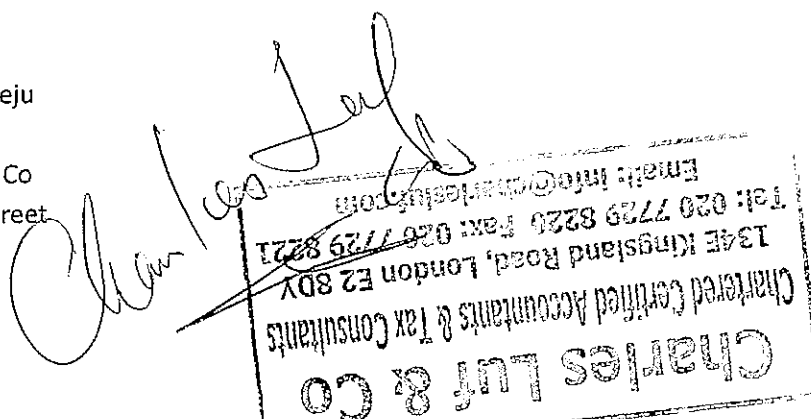 eju
Co
reet
Charles Luf
Charles Luf & Co
Chartered Certified Accountants & Tax Consultants
134E Kingsland Road, London E2 8DY
Tel: 020 7729 8220 Fax: 020 7729 8221
Email: info@charlesluf.com